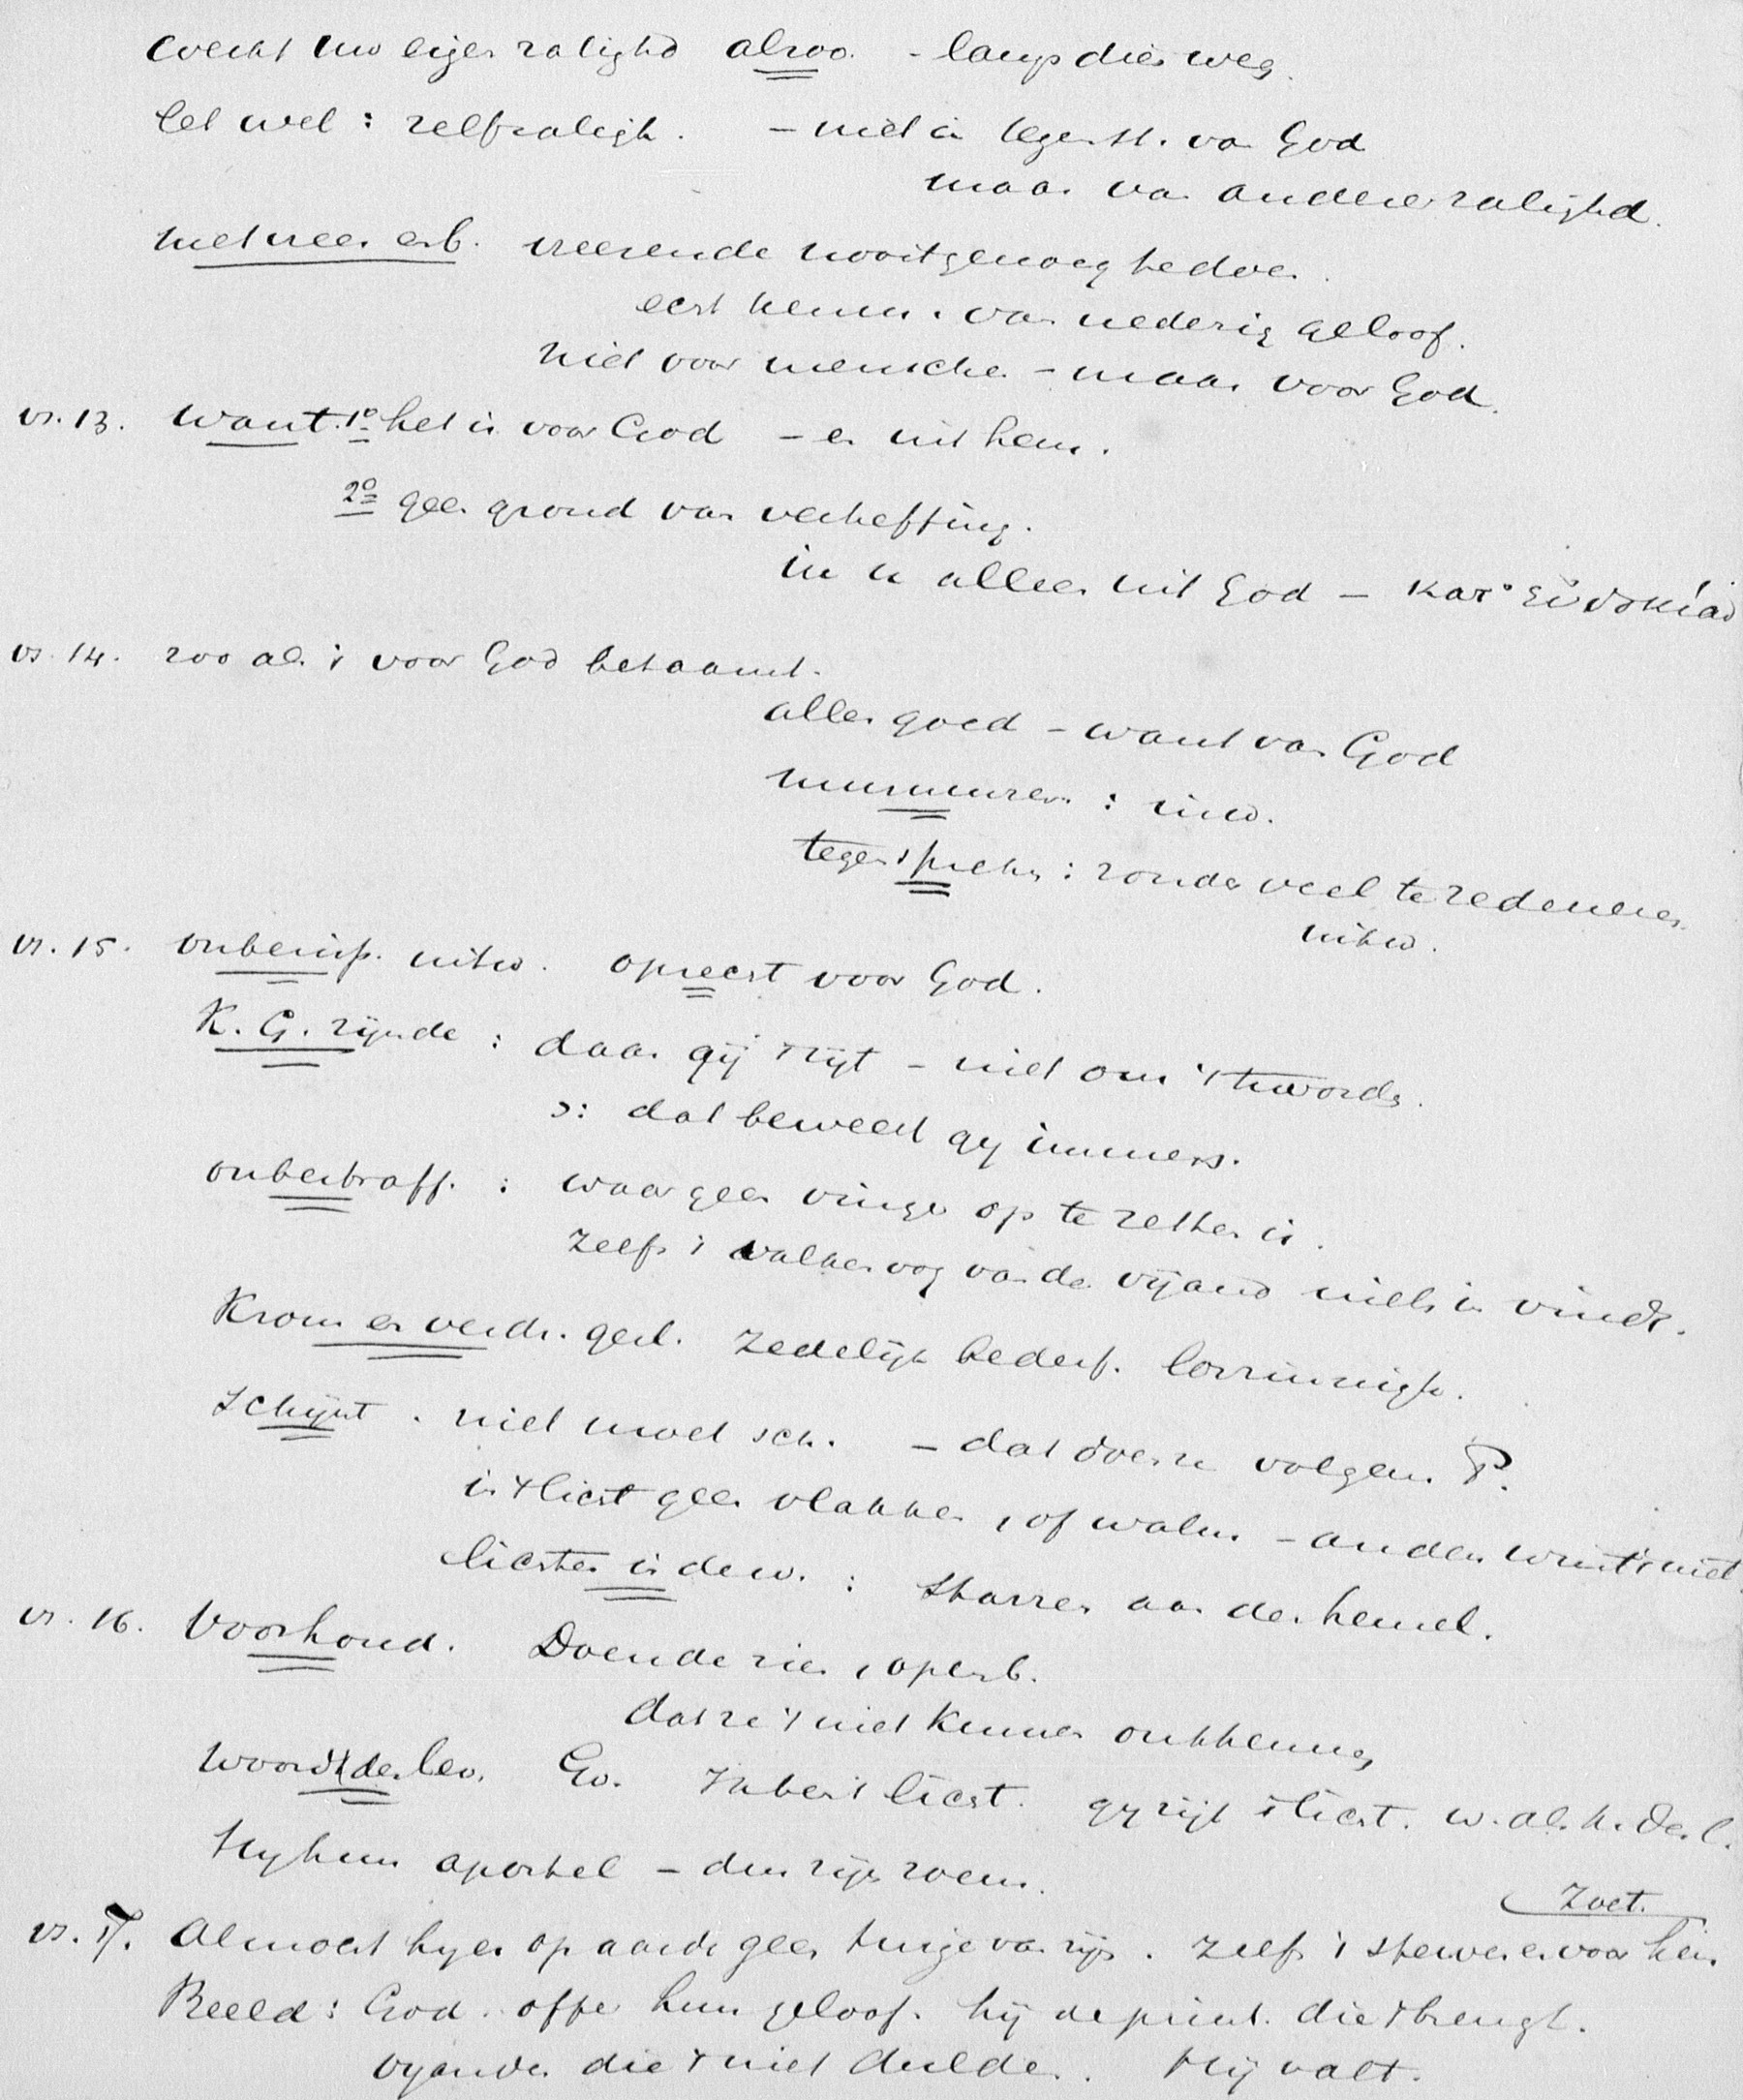 werkt uw eigen zalighd alzoo. - langs dien weg.
let wel : zelfzaligh. - niet in tegenst. van God
maar van anderer zalighd.
met vrees en b. vreezende nooit genoeg te doen.
echt kenm. van nederig geloof.
niet voor menschen - maar voor God.
vs. 13. want. 1º het is voor God - en uit hem.
2º geen grond van verheffing.
in u alleen uit God - κατ' εὐδοκίαν
vs. 14. zoo als 't voor God betaamt.
alles goed - want van God
murmureren : inw.
tegenspreken : zonder veel te redeneren
uitw.
vs. 15. onberisp. uitw. oprecht voor God.
K. G. zijnde : daar gij 't zijt - niet om 't te worden.
ɔ: dat beweert gij immers.
onbestraff. : waar geen vinger op te zetten is.
zelfs 't wakend oog van den vijand niets in vindt.
Krom en verdr. gesl. zedelijk bederf. loszinnigh.
schijnt. niet moet sch. - dat doen ze volgens P.
in 't licht geen vlakken, of walm - anders wint 't niet.
lichten in de w. : starren aan den hemel.
vs. 16. Voorhoud. Doende zien, openb.
dat ze 't niet kunnen ontkennen
woord des lev. Ev. 't licht. gij zijt 't licht. w. als h. des l.
Hij hun apostel - dus zijn roem.
zoet.
vs. 17. Al mocht hij er op aarde geen getuige van zijn. Zelfs 't sterven er voor hem
Beeld : God. offer hun geloof. hij de priest. die 't brengt.
vijanden die 't niet dulden. Hij valt.